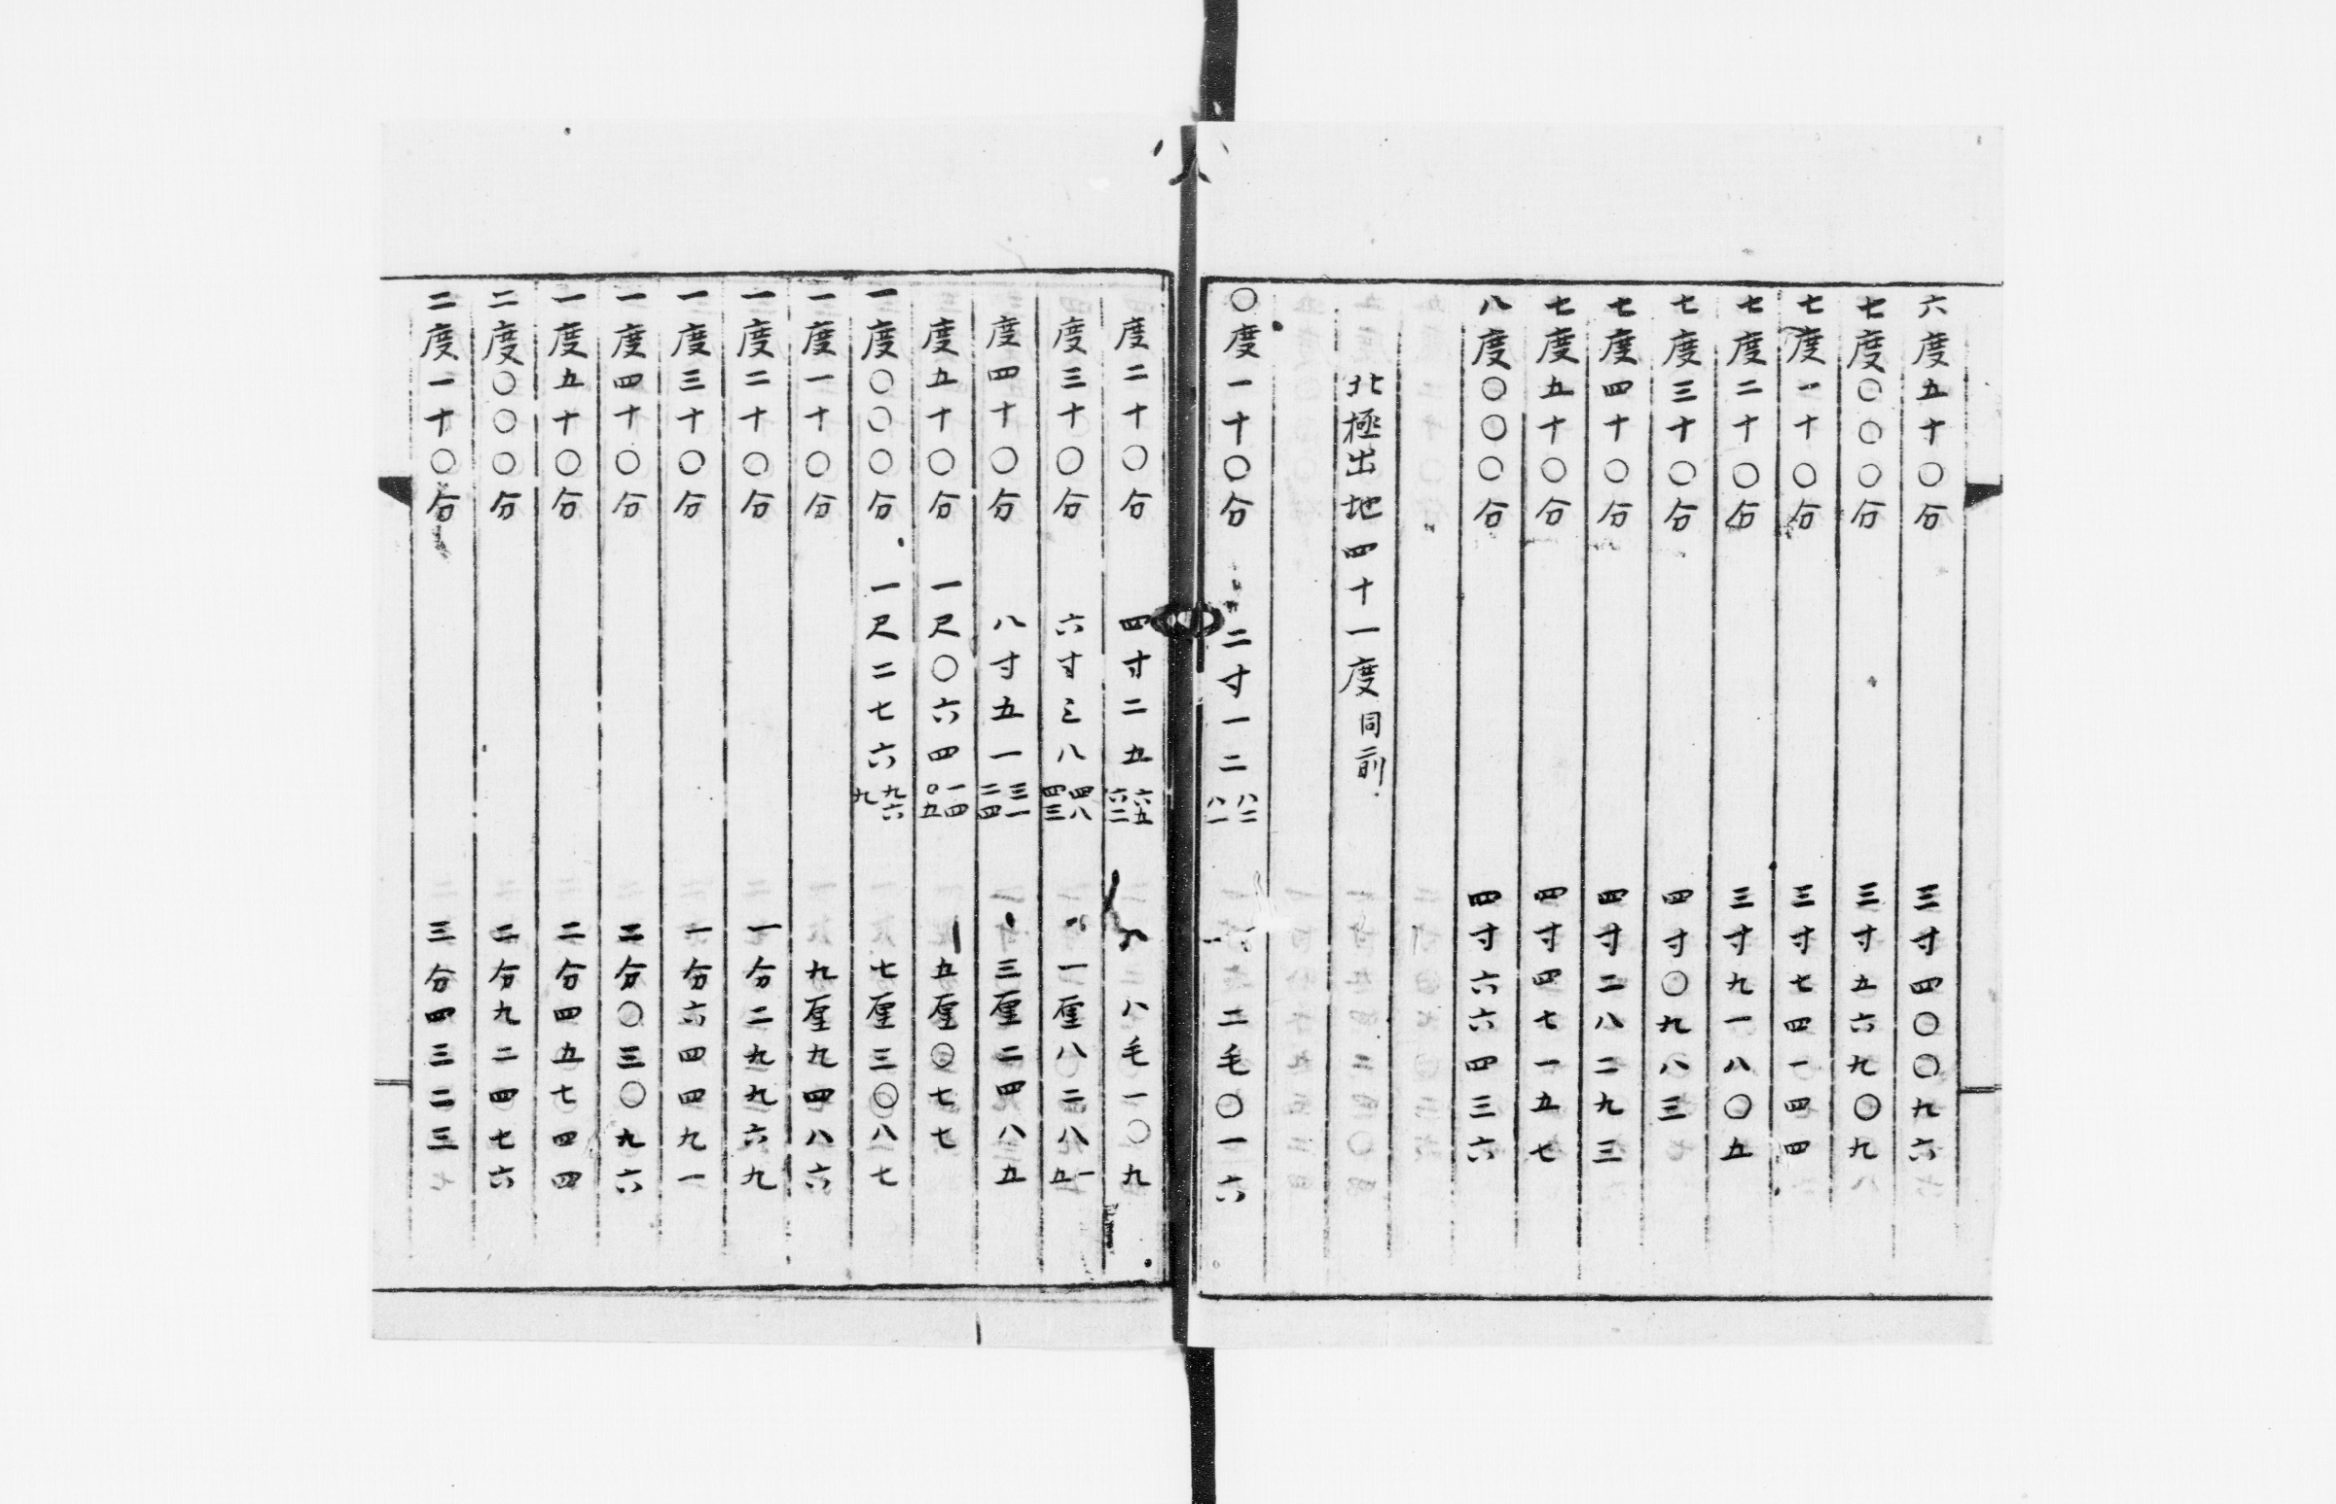 六度五十〇分 三寸四〇〇九六
七度〇〇〇分 三寸五六九〇九
七度一十〇分 三寸七四一四四
七度二十〇分 三寸九一八〇五
七度三十〇分 四寸〇九八三
七度四十〇分 四寸二八二九三
七度五十〇分 四寸四七一五七
八度〇〇〇分 四寸六六四三六
北極出地四十一度同前
〇度一十〇分 二寸一二八二八一 二毛〇一六
度二十〇分 四寸二五六五六二 八毛一〇九
度三十〇分 六寸三八四八四三 一厘八二八一五
度四十〇分 八寸五一三一二四 三厘二四八五
度五十〇分 一尺〇六四一四〇五 五厘〇七七
一度〇〇〇分 一尺二七六九六九 七厘三〇八七
一度一十〇分 九厘九四八六
一度二十〇分 一分二九九六九
一度三十〇分 一分六四四九一
一度四十〇分 二分〇三〇九六
一度五十〇分 二分四五七四四
二度〇〇〇分 二分九二四七六
二度一十〇分 三分四三二三